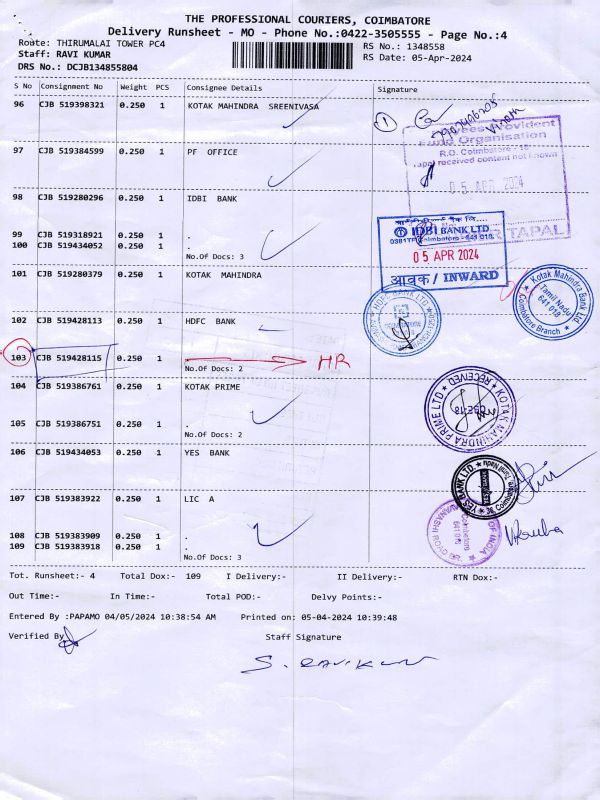 THE PROFESSIONAL COURIERS, COIMBATORE
Delivery Runsheet - MO - Phone No.:0422-3505555 - Page No.:4
Route: THIRUMALAI TOWER PC4
RS No.: 1348558
Staff: RAVI KUMAR
RS Date: 05-Apr-2024
DRS No.: DCJB134855804
S No Consignment No Weight PCS Consignee Details Signature
96 CJB 519398321 0.250 1 KOTAK MAHINDRA SREENIVASA
1
97 CJB 519384599 0.250 1 PF OFFICE
Provident
Fund Organisation
R.O. Coimbatore - 18
received content not known
05 APR 2024
TAPAL
98 CJB 519280296 0.250 1 IDBI BANK
IDBI BANK LTD
Coimbatore - 641 018.
05 APR 2024
आवक / INWARD
99 CJB 519318921 0.250 1 .
100 CJB 519434052 0.250 1 .
No.Of Docs: 3
101 CJB 519280379 0.250 1 KOTAK MAHINDRA
Kotak Mahindra Bank Ltd
Tamil Nadu
641 018
Coimbatore Branch
102 CJB 519428113 0.250 1 HDFC BANK
HDFC BANK LTD
103 CJB 519428115 0.250 1 HR
No.Of Docs: 2
104 CJB 519386761 0.250 1 KOTAK PRIME
KOTAK MAHINDRA PRIME LTD
RECEIVED
CBE-18
105 CJB 519386751 0.250 1 .
No.Of Docs: 2
106 CJB 519434053 0.250 1 YES BANK
YES BANK LTD
107 CJB 519383922 0.250 1 LIC A
OF INDIA
Coimbatore
108 CJB 519383909 0.250 1 .
109 CJB 519383918 0.250 1 .
No.Of Docs: 3
Tot. Runsheet:- 4 Total Dox:- 109 I Delivery:- II Delivery:- RTN Dox:-
Out Time:- In Time:- Total POD:- Delvy Points:-
Entered By :PAPAMO 04/05/2024 10:38:54 AM Printed on: 05-04-2024 10:39:48
Verified By
Staff Signature